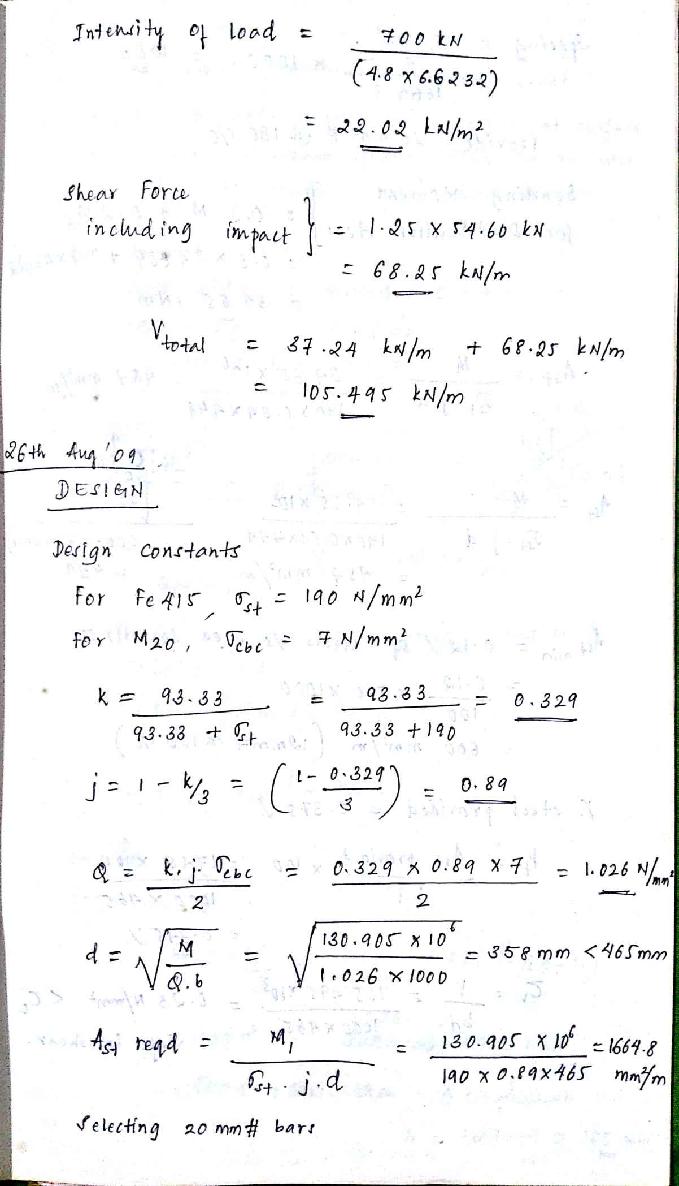 Intensity of load = 700 kN / (4.8 x 6.6232)
= 22.02 kN/m²
Shear Force including impact } = 1.25 x 54.60 kN
= 68.25 kN/m
V total = 37.24 kN/m + 68.25 kN/m
= 105.495 kN/m
26th Aug '09.
DESIGN
Design constants
For Fe 415, σst = 190 N/mm²
for M20, σcbc = 7 N/mm²
k = 93.33 / (93.33 + σst) = 93.33 / (93.33 + 190) = 0.329
j = 1 - k/3 = (1 - 0.329/3) = 0.89
Q = k.j.σcbc / 2 = 0.329 x 0.89 x 7 / 2 = 1.026 N/mm²
d = √(M / Q.b) = √(130.905 x 10⁶ / 1.026 x 1000) = 358 mm < 465mm
Ast reqd = M, / σst . j.d = 130.905 x 10⁶ / 190 x 0.89x465 = 1664.8 mm²/m
Selecting 20 mm # bars